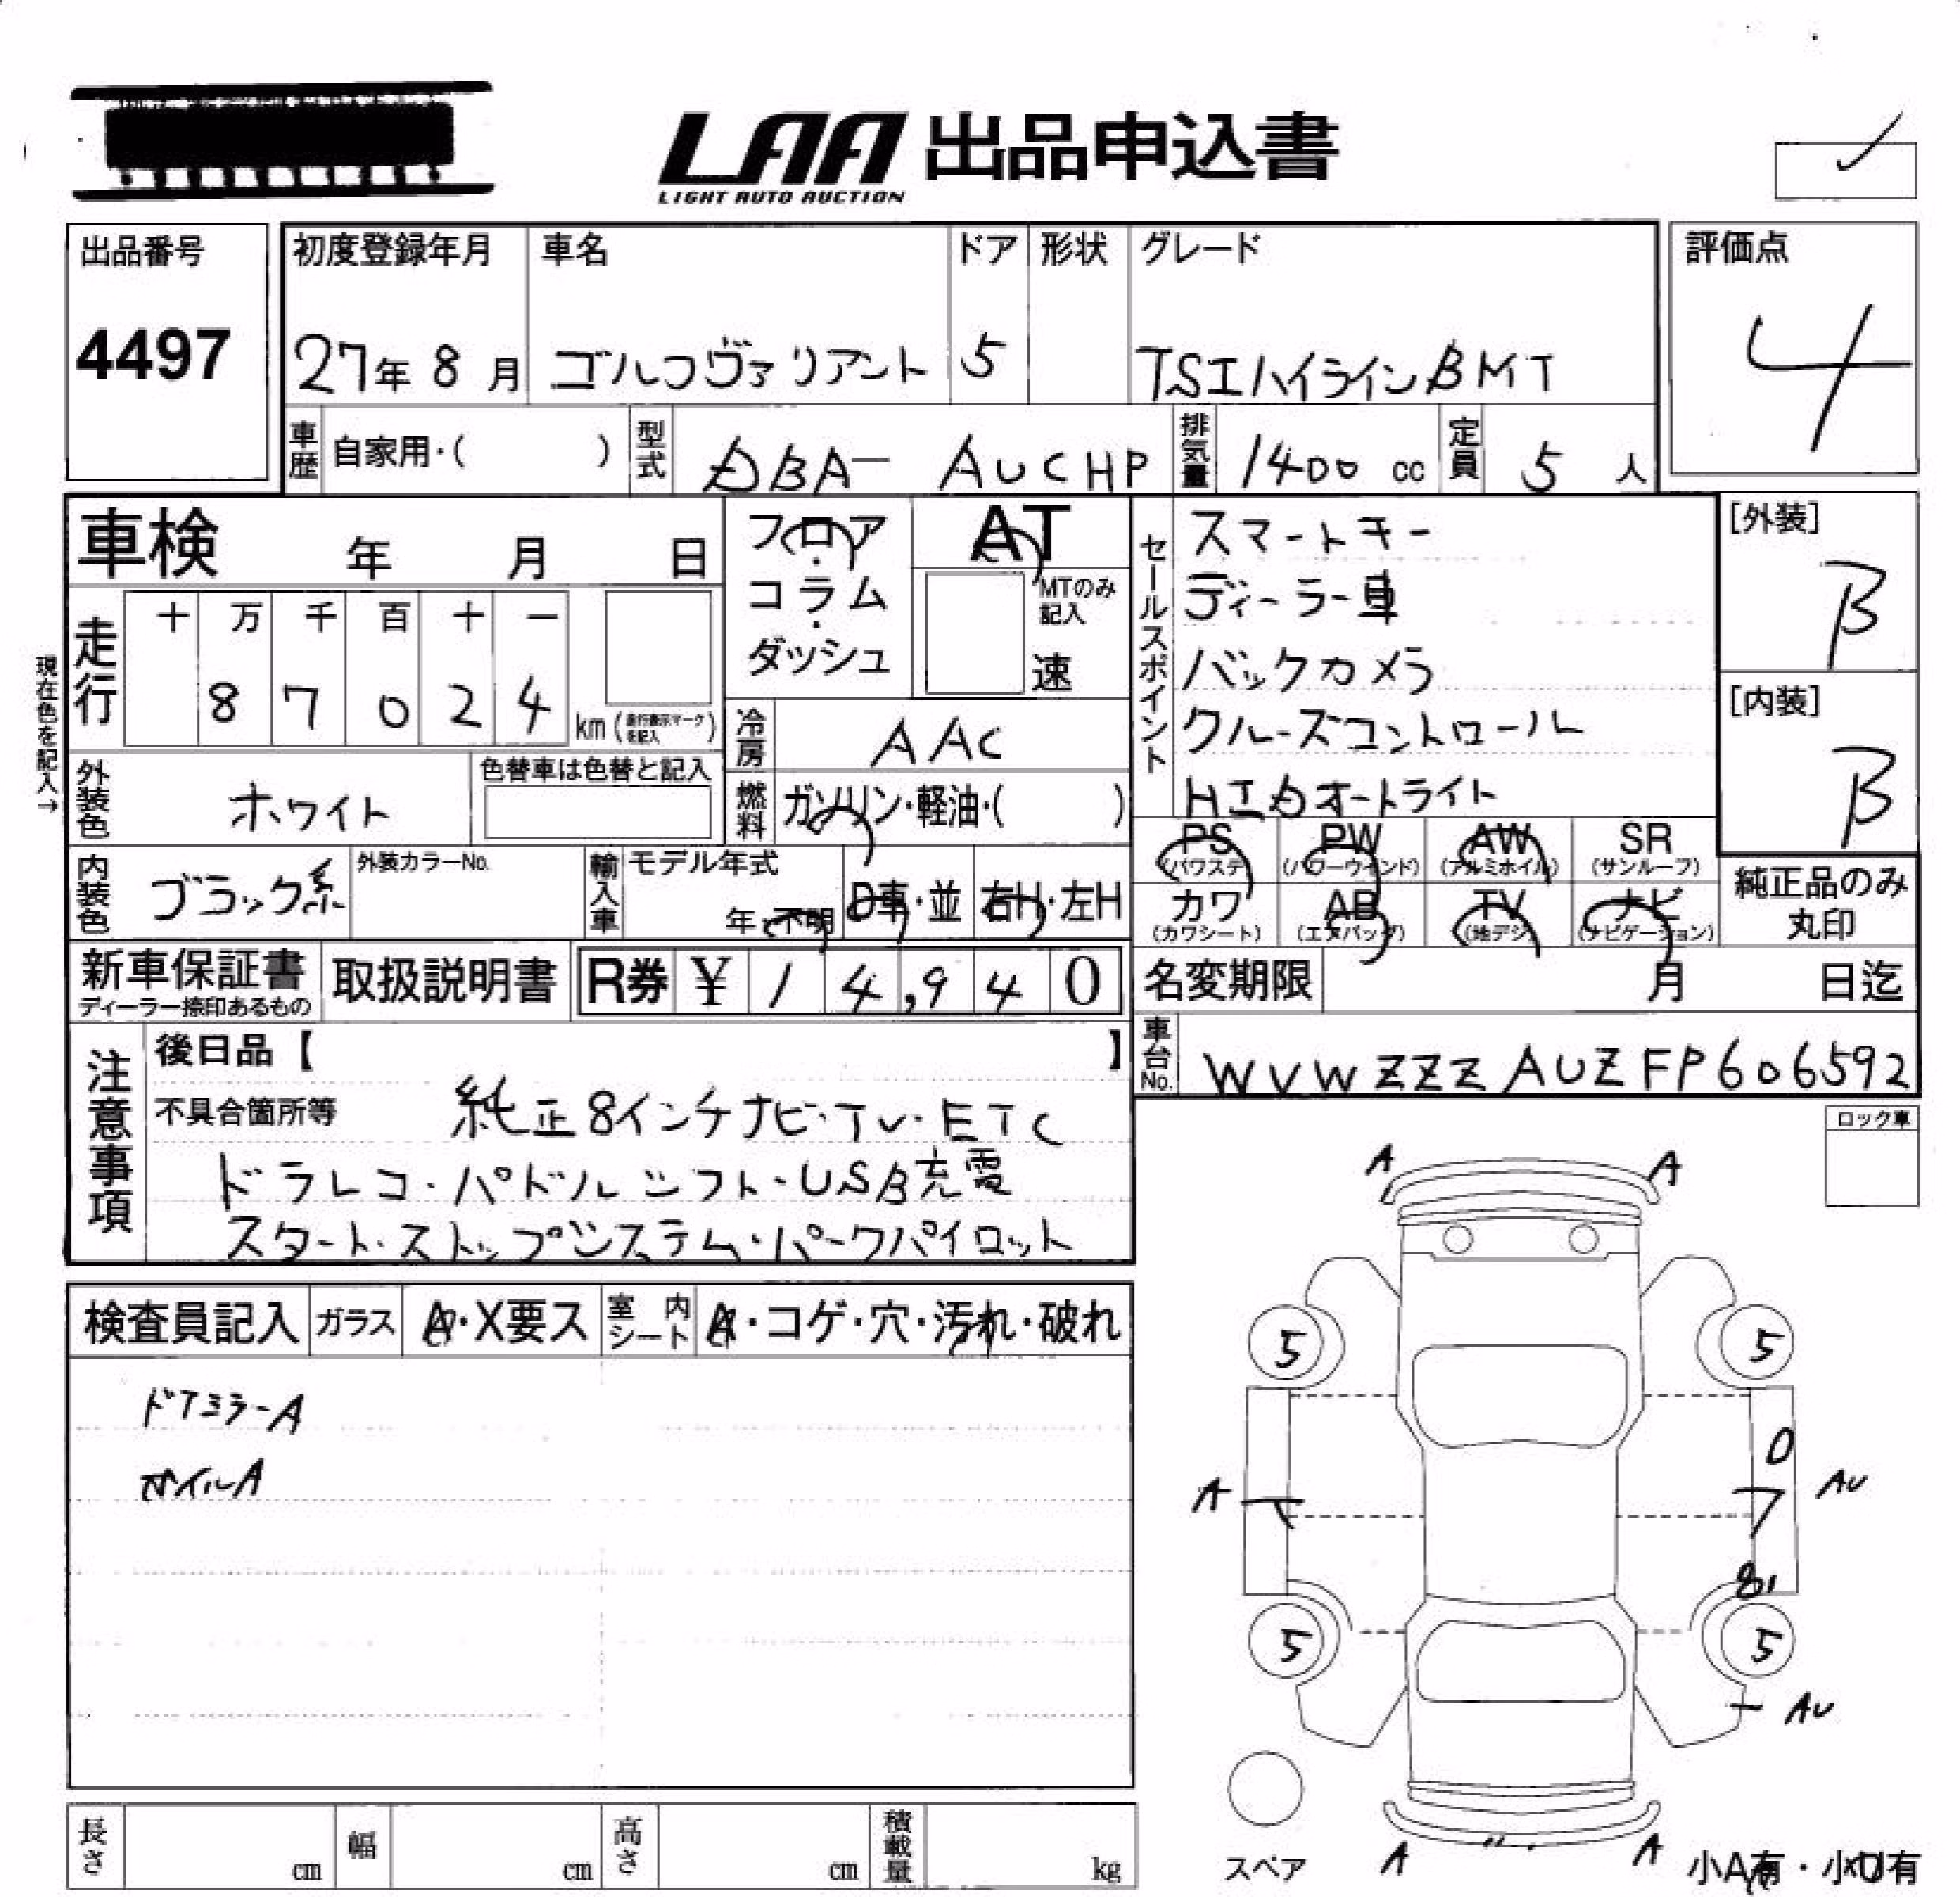 LAA 出品申込書
LIGHT AUTO AUCTION
出品番号
4497
初度登録年月 車名 ドア 形状 グレード
27年 8月 ゴルフヴァリアント 5 TSIハイラインBMT
評価点
4
車歴 自家用・( ) 型式 DBA- AUCHP 排気量 1400 cc 定員 5 人
車検 年 月 日
フロア・コラム・ダッシュ
AT
MTのみ記入
速
セールスポイント
スマートキー
ディーラー車
バックカメラ
クルーズコントロール
HIDオートライト
[外装]
B
[内装]
B
現在色を記入→
走行 十 万 千 百 十 一
8 7 0 2 4 km (走行表示マークを記入)
冷房 AAC
外装色 ホワイト 色替車は色替と記入
燃料 ガソリン・軽油・( )
内装色 ブラック系 外装カラーNo.
輸入車 モデル年式 年・不明 D車・並 右H・左H
PS (パワステ) PW (パワーウインド) AW (アルミホイル) SR (サンルーフ)
カワ (カワシート) AB (エアバッグ) TV (地デジ) ナビ (ナビゲーション)
純正品のみ丸印
新車保証書 ディーラー捺印あるもの 取扱説明書 R券 ¥ 1 4,9 4 0
名変期限 月 日迄
車台No. WVWZZZAUZFP606592
注意事項
後日品【 】
不具合箇所等 純正8インチナビ・TV・ETC
ドラレコ・パドルシフト・USB充電
スタート・ストップシステム・パークパイロット
ロック車
検査員記入 ガラス A・X要ス 室内シート A・コゲ・穴・汚れ・破れ
ドアミラーA
ホイルA
A A
5 5
A AU
5 5
AU
スペア A A
小A有・小U有
長さ cm 幅 cm 高さ cm 積載量 kg